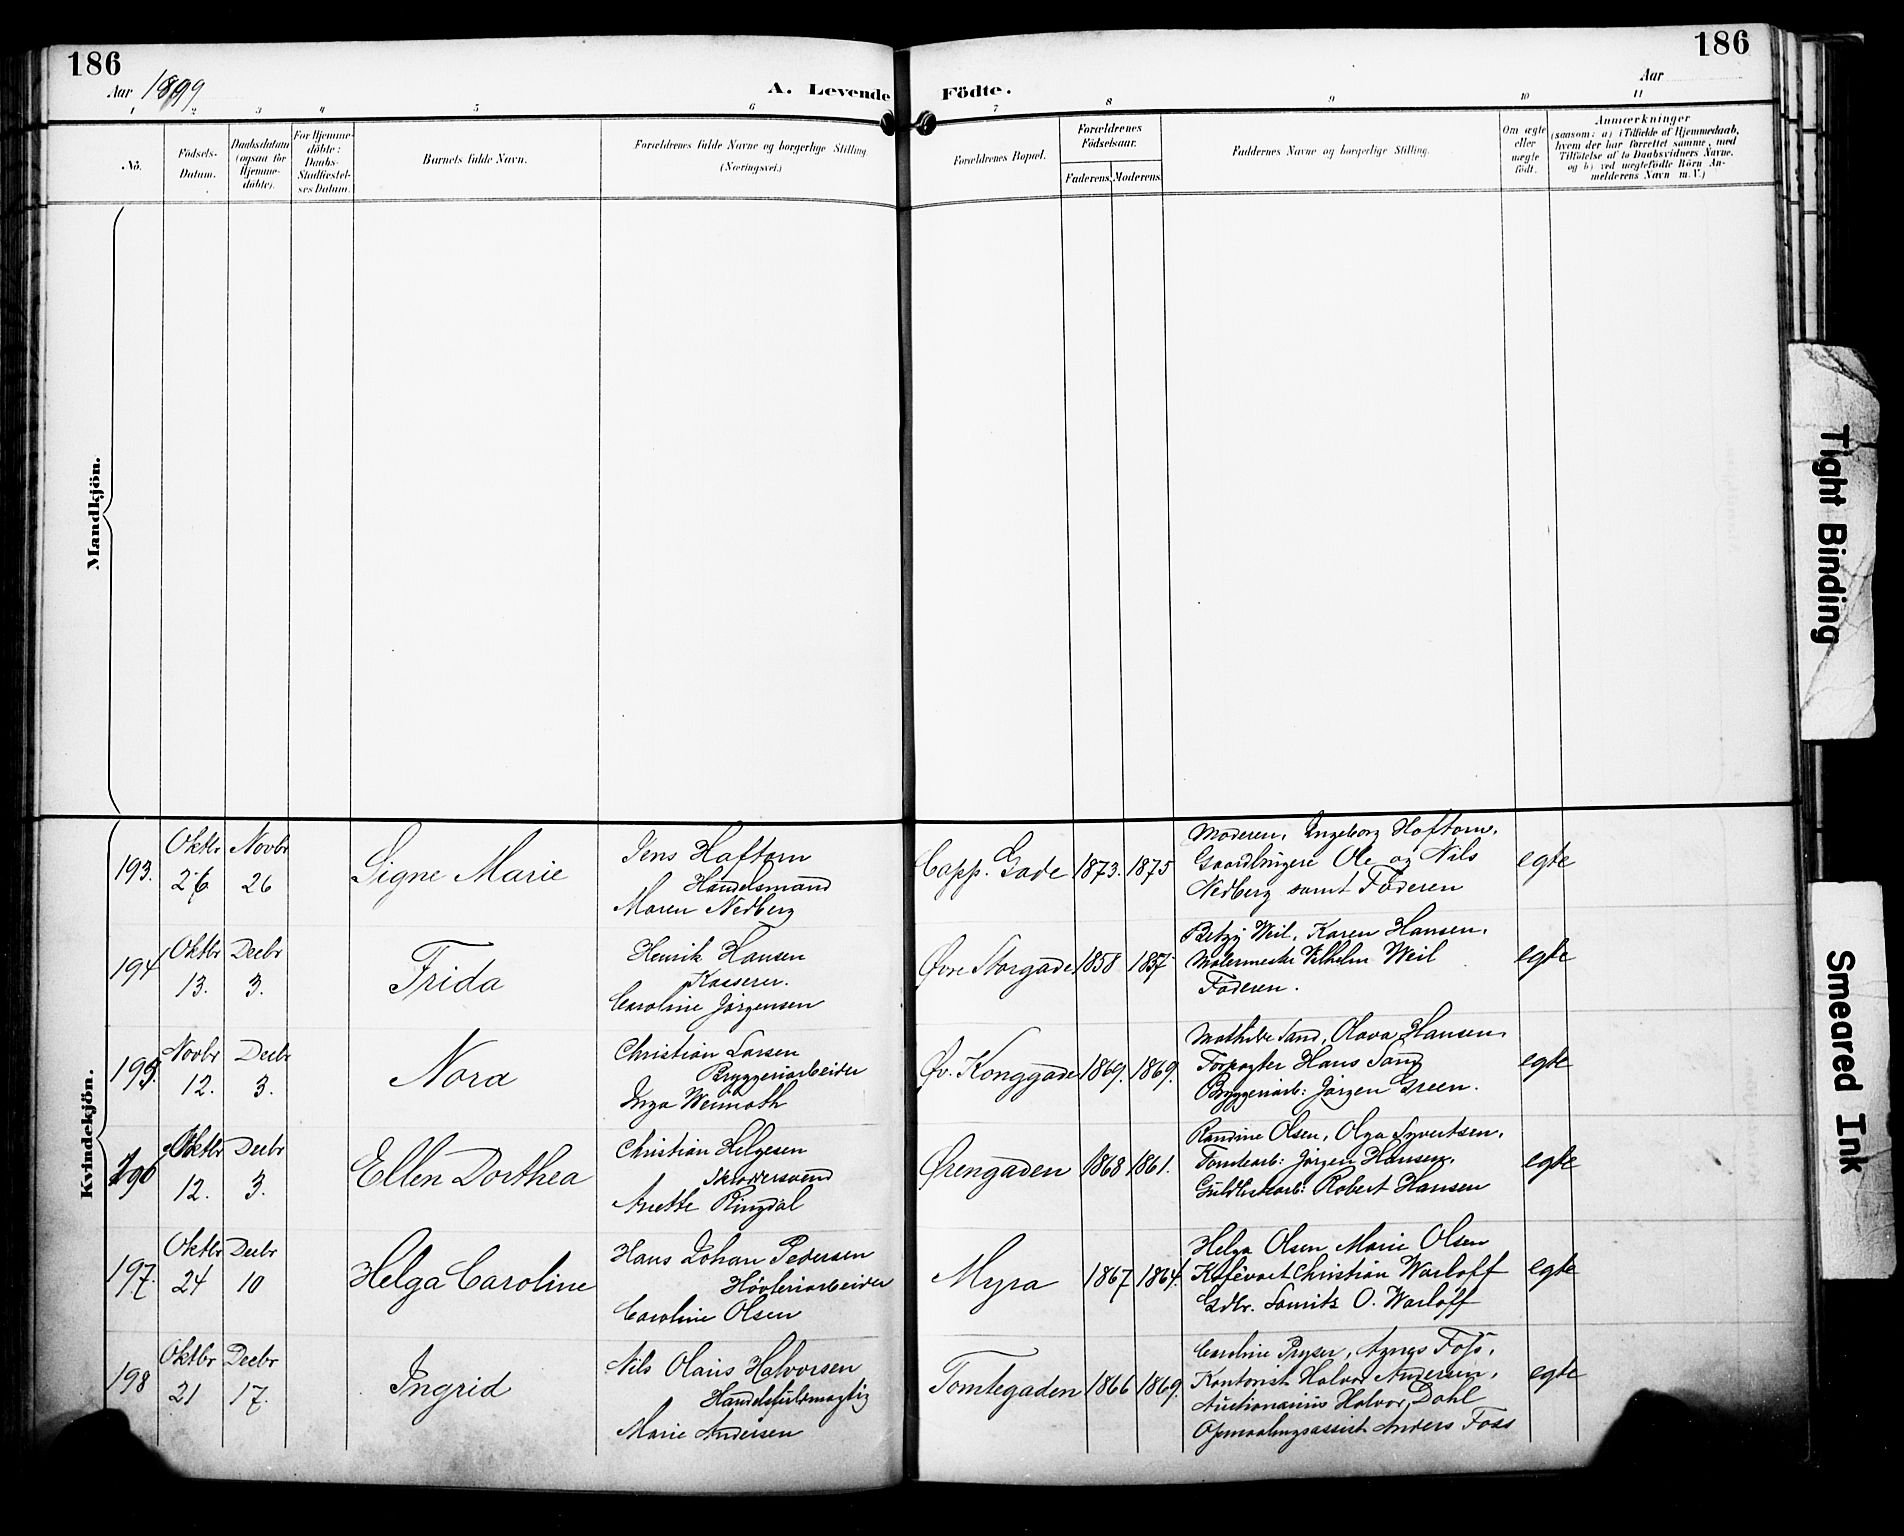 186
186
Aar 1899
A. Levende Födte.
Aar
1 2 3 4 5 6 7 8 9 10 11
Nô.
Födsels-
Datum.
Daabsdatum
(ogsaa for
Hjemme-
döbte).
For Hjemme-
döbte:
Daabs-
Stadfæstel-
ses Datum.
Barnets fulde Navn.
Forældrenes fulde Navne og borgerlige Stilling
(Næringsvei.)
Forældrenes Bopæl.
Forældrenes
Födselsaar.
Faderens. Moderens.
Faddernes Navne og borgerlige Stilling.
Om ægte
eller
uægte
född.
Anmærkninger
(saasom: a) i Tilfælde af Hjemmedaab,
hvem der har forrettet samme, med
Tilföielse af to Daabsvidners Navne.
og b) ved uægtefödte Börn An-
melderens Navn m.V.)
Mandkjön.
Kvindekjön.
193. Oktbr 26 Novbr 26 Signe Marie
Jens Haftorn
Handelsmand
Maren Nedberg
Capp. Gade 1873. 1875
Moderen, Ingeborg Haftorn,
Gaardbrugere Ole og Nils
Nedberg samt Faderen
egte
194 Oktbr 13. Decbr 3. Frida
Henrik Hansen
Kasserer.
Caroline Jörgensen
Øvre Storgade 1858 1857
Betzy Weil, Karen Hansen,
Malermester Vilhelm Weil
Faderen.
egte
195. Novbr 12. Decbr 3. Nora
Christian Larsen
Bryggeriarbeider
Inga Weinoth
Øv. Konggade 1869. 1869.
Mathilde Sand, Olava Hansen,
Forpagter Hans Sand
Bryggeriarb: Jörgen Green.
egte
196 Oktbr 12. Decbr 3. Ellen Dorthea
Christian Helgesen
Anette Ringdal
Ørengaden 1868 1861.
Randine Olsen, Olga Syvertsen,
Tomtearb: Jörgen Hansen,
Guldlistearb: Robert Hansen
egte
197. Oktbr 24 Decbr 10 Helga Caroline
Hans Johan Pedersen
Hövleriarbeider
Caroline Olsen
Myra 1867 1864.
Helga Olsen, Marie Olsen
Kafévært Christian Warloff
Gdbr. Lauritz O. Warloff
egte
198 Oktbr 21 Decbr 17. Ingrid
Nils Olaus Halvorsen
Handelsfuldmægtig
Marie Andersen
Tomtegaden 1866 1869.
Caroline Pryser, Agnes Foss,
Kontorist Halvor Andersen,
Auctionarius Halvor Dahl
Opmaalingsassist Anders Foss
egte
Tight Binding
Smeared Ink